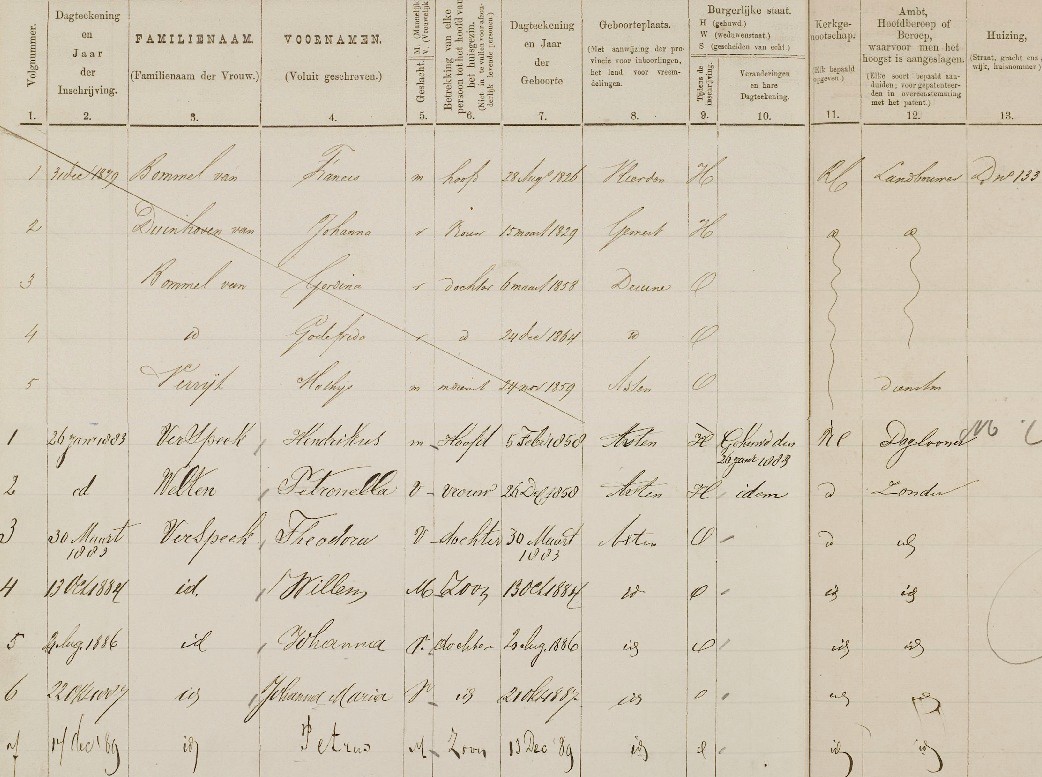 Volgnummer.
Dagteekening en Jaar der Inschrijving.
FAMILIENAAM.
(Familienaam der Vrouw.)
VOORNAMEN.
(Voluit geschreven.)
Geslacht. M. (Mannelijk) V. (Vrouwelijk)
Betrekking van elke persoon tot het hoofd van het huisgezin.
Dagteekening en Jaar der Geboorte
Geboorteplaats.
(Met aanwijzing der provincie voor inboorlingen, het land voor vreemdelingen.
Burgerlijke staat.
H (gehuwd.)
W (weduwenstaat.)
S (gescheiden van echt.)
Tijdens de inschrijving.
Veranderingen en hare Dagteekening.
Kerkgenootschap.
(Elk bepaald opgeven.)
Ambt, Hoofdberoep of Beroep, waarvoor men het hoogst is aangeslagen.
(Elke soort bepaald aanduiden; voor gepatenteerden in overeenstemming met het patent.)
Huizing,
(Straat, gracht enz., wijk, huisnommer)
1. 2. 3. 4. 5. 6. 7. 8. 9. 10. 11. 12. 13.
1 31 dec 1879 Bommel van Francis m hoofd 28 Aug 1826 Heerden H RC Landbouwer 133
2 Duinhoven van Johanna v Vrouw 15 maart 1829 Gemert H
3 Bommel van v dochter 6 maart 1858 Deurne O
4 Godefrida v d 24 dec 1864 O
5 Verrijt Mathijs m 24 nov 1859 Asten O
1 26 janr 1883 VerSpeek Hendrikus m Hoofd 5 Febr 1850 Asten H Gehuwd den 26 janr 1883 RC Dagloner
2 id Wilten Petronella V vrouw 26 Dec 1858 Asten H idem Zonder
3 30 Maart 1883 VerSpeek Theodora V dochter 30 Maart 1883 Asten O
4 13 Oct 1884 id. Willem M Zoon 13 Oct 1884 id O id id
5 2 Aug 1886 id Johanna V. dochter 2 Aug 1886 id O id id
6 22 Oct 1887 id Johanna Maria V id 21 Oct 1887 id O id id
7 14 dec '89 id Petrus M Zoon 13 Dec '89 id O id id